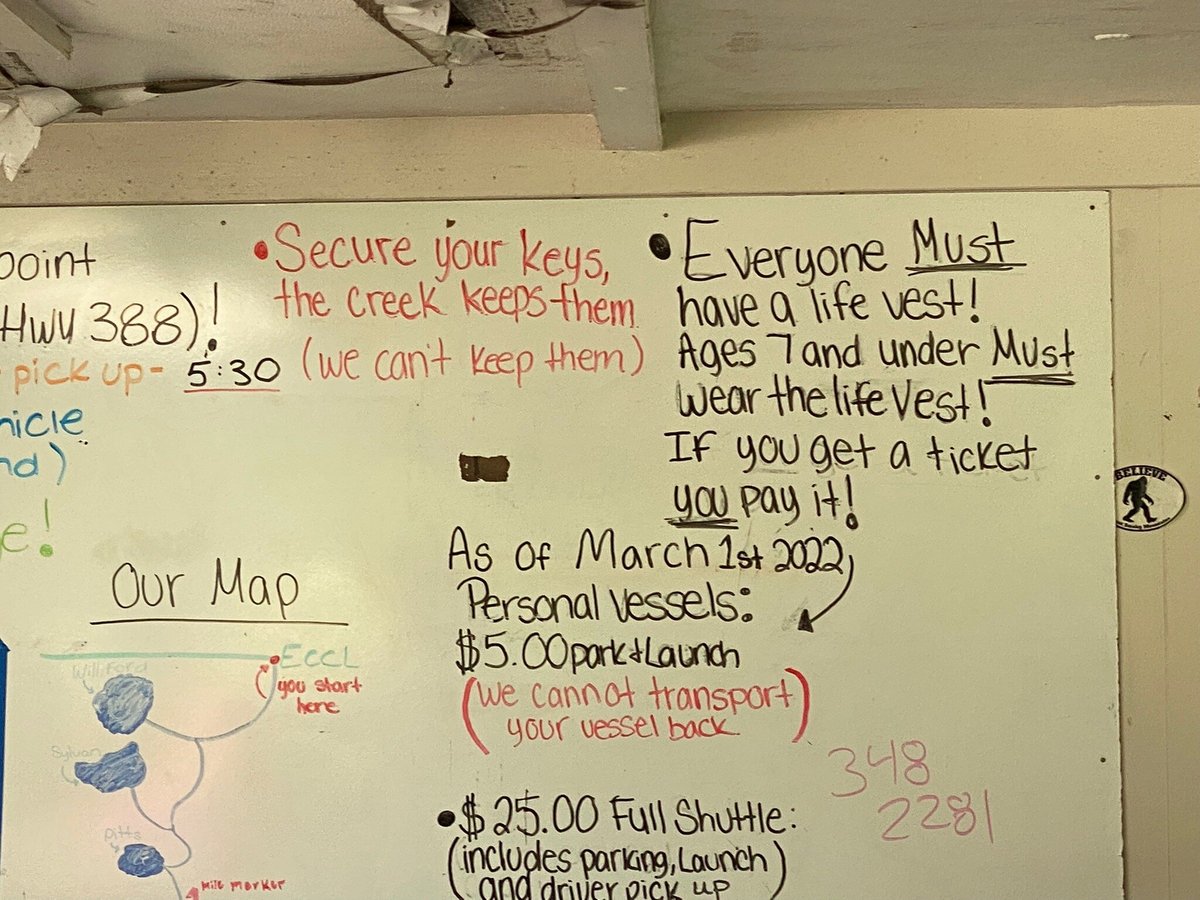 point
Hwy 388)!
pick up- 5:30
hicle
nd)
e!
• Secure your keys,
the creek keeps them
(we can't keep them)
• Everyone Must
have a life vest!
Ages 7 and under Must
wear the life vest!
If you get a ticket
you pay it!
BELIEVE
As of March 1st 2022,
Personal vessels:
$5.00 park + Launch
(we cannot transport)
your vessel back
• $25.00 Full Shuttle:
(includes parking, Launch)
and driver pick up
348
2281
Our Map
ECCL
you start
here
Williford
Sylvan
Pitts
mile marker